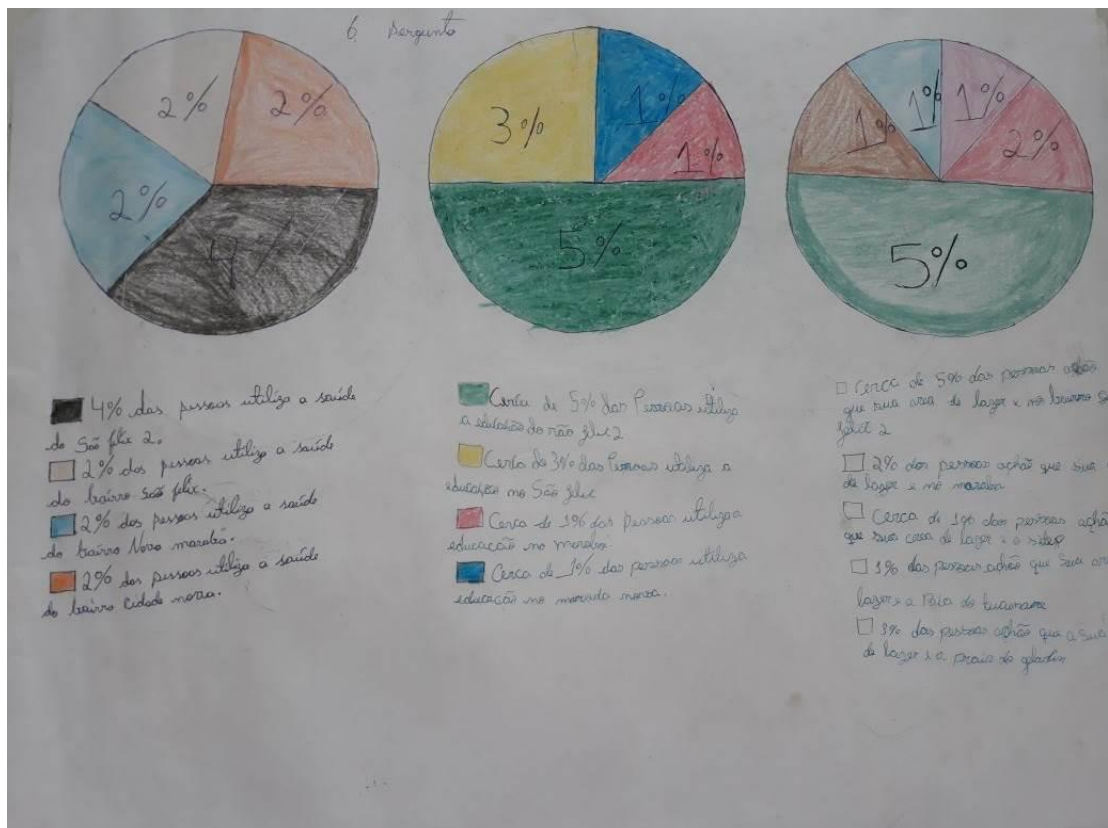 6. Pergunta
2%
2%
2%
4%
3%
1%
1%
5%
1%
1%
1%
2%
5%
4% das pessoas utiliza a saúde
do São flix 2.
2% das pessoas utiliza a saúde
do bairro São felix.
2% das pessoas utiliza a saúde
do bairro Nova marabá.
2% das pessoas utiliza a saúde
do bairro Cidade nova.
Cerca de 5% das Pessoas utiliza
a educação do são flix 2
Cerca de 3% das Pessoas utiliza a
educação no São flix
Cerca de 1% das pessoas utiliza a
educação no marabá.
Cerca de 1% das pessoas utiliza
educação no morada nova.
Cerca de 5% das pessoas achão
que sua area de lazer e no bairro S
2
2% das pessoas achão que sua
de lazer e no marabá
Cerca de 1% das pessoas achã
que sua de lazer e o
1% das pessoas achão que sua ar
lazer e a do tucunare
1% das pessoas achão que a sua
de lazer e a praia do